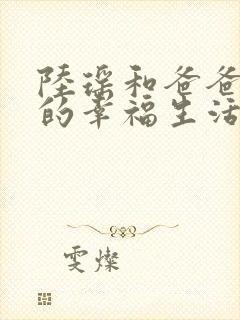 陸瑶和爸爸
的幸福生活
雯燦